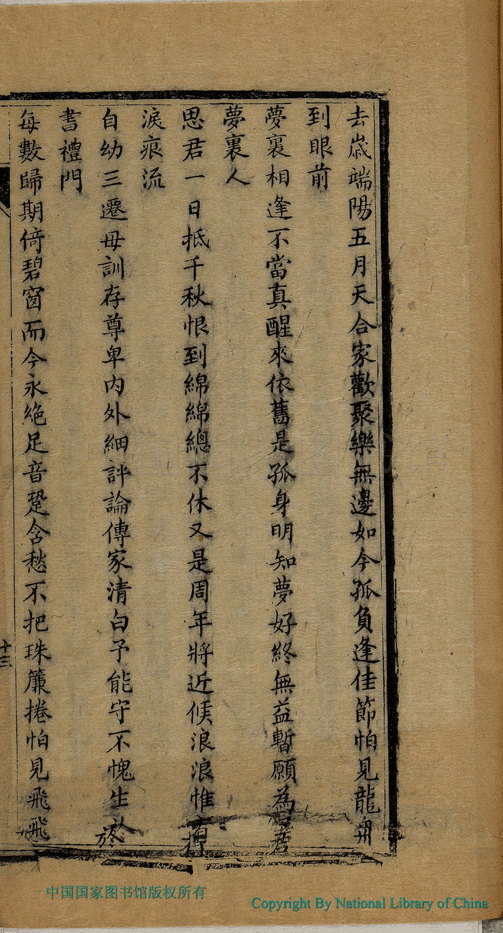 去嵗端陽五月天合家歡聚樂無邊如今孤負逢佳節怕見龍舟
到眼前
夢裏相逢不當真醒來依舊是孤身明知夢好終無益暫願為
夢裏人
思君一日抵千秋恨到綿綿總不休又是周年將近候浪浪惟有
淚痕流
自幼三遷母訓存尊卑內外細評論傳家清白予能守不愧生於
書禮門
每數歸期倚碧窗而今永絶足音跫含愁不把珠簾捲怕見飛飛
十三
中国国家图书馆版权所有
Copyright By National Library of China